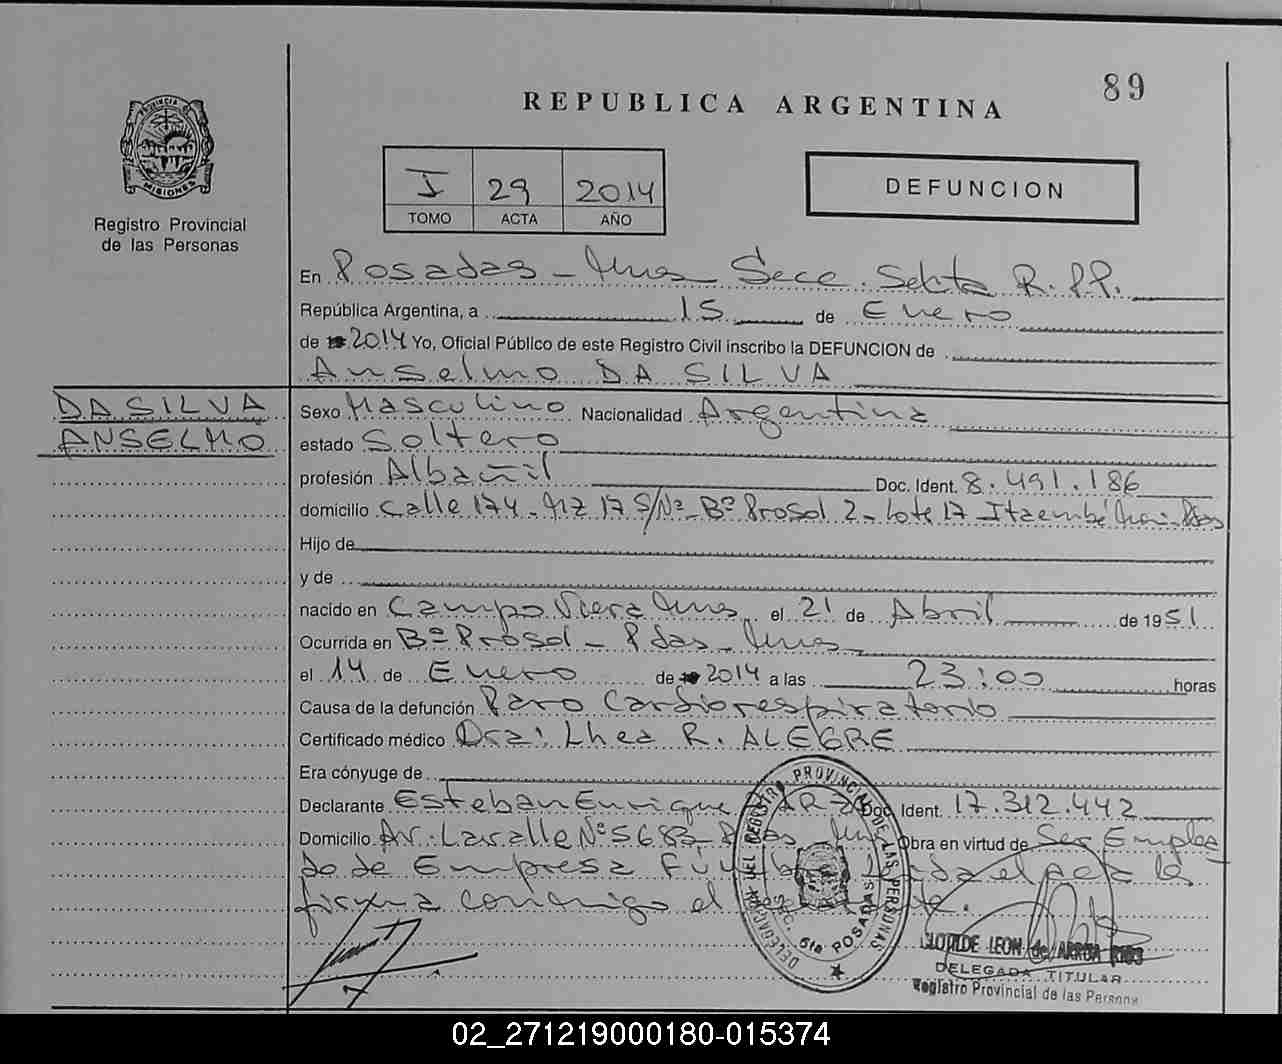 89
REPUBLICA ARGENTINA
PROVINCIA DE MISIONES
Registro Provincial
de las Personas
I 29 2014
TOMO ACTA AÑO
DEFUNCION
En Posadas - Mnes Secc. Sexta R.PP.
República Argentina, a 15 de Enero
de 2014 Yo, Oficial Público de este Registro Civil inscribo la DEFUNCION de
Anselmo DA SILVA
DA SILVA
ANSELMO
Sexo Masculino Nacionalidad Argentina
estado Soltero
profesión Albañil Doc. Ident. 8.491.186
domicilio Calle 174 - Mz 17 S/Nº - Bº Prosol 2 - Lote 17 Itaembé Pdas
Hijo de
y de
nacido en Campo Viera Mnes el 21 de Abril de 1951
Ocurrida en Bº Prosol - Pdas - Mnes
el 14 de Enero de 2014 a las 23:00 horas
Causa de la defunción Paro Cardiorespiratorio
Certificado médico Dra: Lhea R. ALEGRE
Era cónyuge de
Declarante Esteban Enrique Doc. Ident. 17.312.442
Domicilio Av. Lavalle Nº 5683 - Pdas Mn Obra en virtud de Ser Emplea
do de Empresa Fúnebre Leida el acta la
firma conmigo el
DELEGACION DEL REGISTRO PROVINCIAL DE LAS PERSONAS
SEC. 6ta POSADAS
CLOTILDE LEON de
DELEGADA TITULAR
Registro Provincial de las Personas
02_271219000180-015374